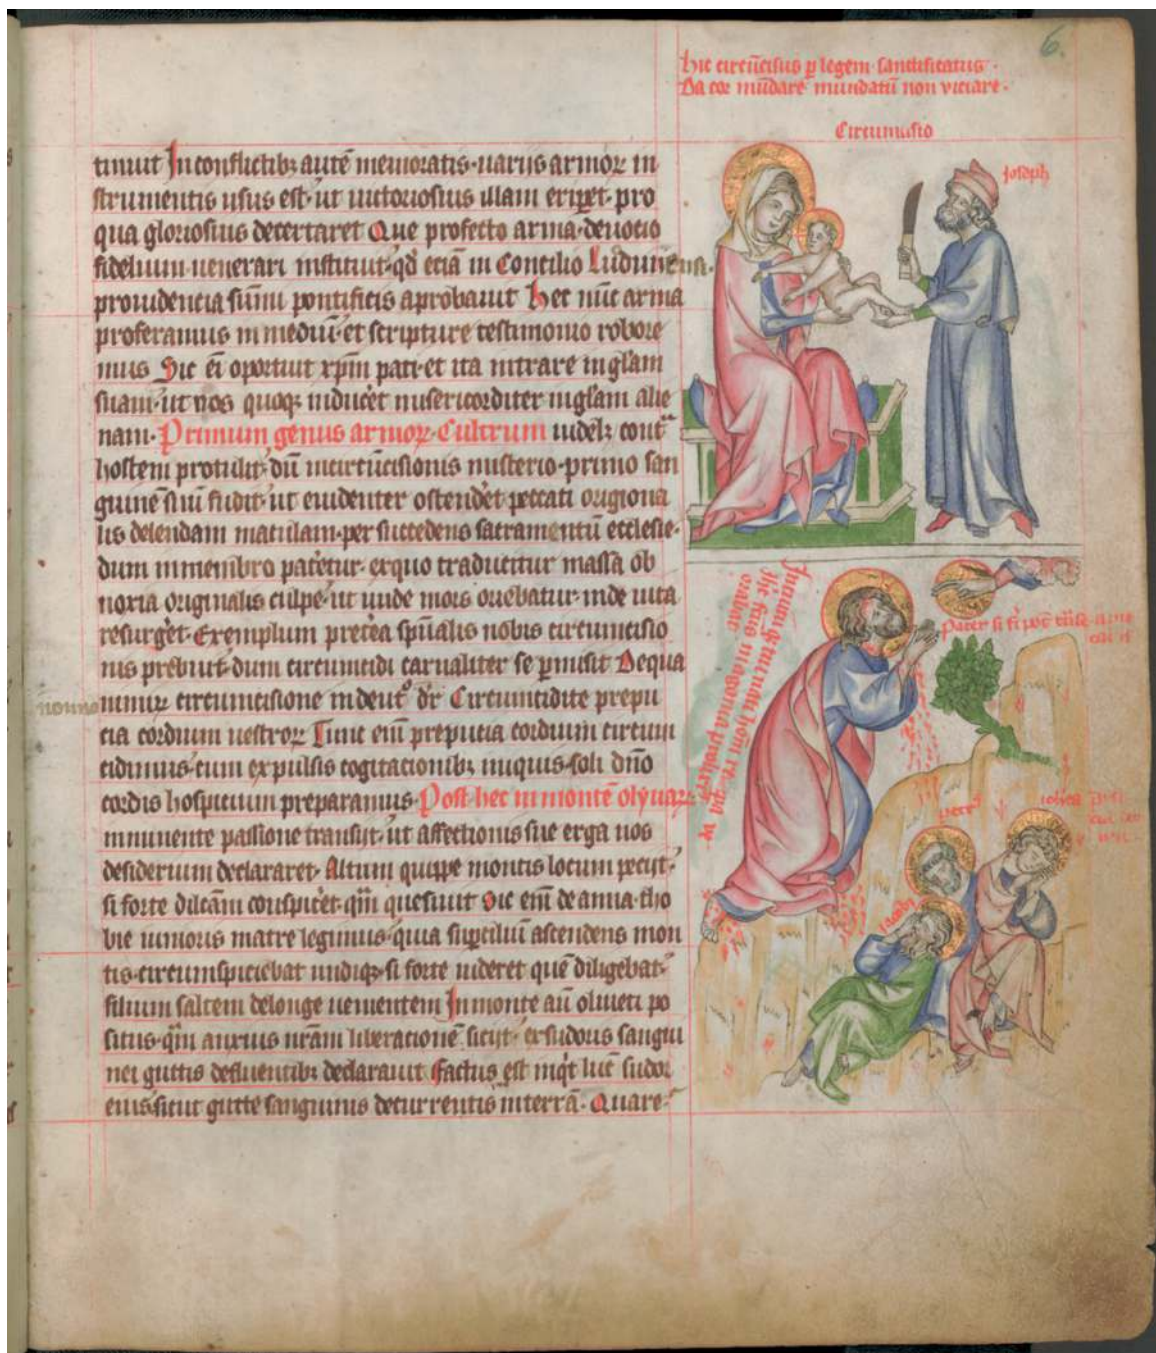 6.
hic circūcisus ꝑ legem sanctificatus·
Da cor mūdare mundatū non viciare·
Circumcisio
Joseph
tinuit In conflictibꝫ autē memoratis· uarijs armoꝝ in
strumentis usus est· ut uictoriosius illam eriꝑet· pro
qua gloriosius decertaret Que profecto arma· deuocio
fidelium uenerari instituit· qđ eciā in Concilio Ludunēnsi·
prouidencia sūmi pontificis aprobauit Hec nūc arma
proferamus in mediū· et scripture testimonio robore
mus Sic eī oportuit xp̄m pati· et ita intrare in gl̄am
suam· ut nos quoqꝫ induceret misericorditer in gl̄am alie
nam· Primum genus armoꝝ· Cultrum uidelꝫ cont̾
hostem protulit· dū in circūcisionis misterio· primo san
guinē suū fudit· ut euidenter ostenderet peccati origiona
lis delendam maculam· per succedens sacramentū ecclesie·
dum in membro pateretur· ex quo traducitur massa ob
noxia originalis culpe· ut unde mors oriebatur· inde uita
resurgeret· Exemplum pret̾ea sp̄ualis nobis circumcisio
nis prebuit· dum circumcidi carnaliter se ꝑmisit De qua
nonne
nimiꝝ circumcisione in deut̾o dr̄ Circumcidite prepu
cia cordium uestroꝝ Tunc eni̅ prepucia cordium circum
cidimus· cum expulsis cogitacionibꝫ iniquis· soli dn̄o
cordis hospicium preparamus· Post hec in montē olyuaꝝ·
imminente passione transijt· ut affectionis sue erga nos
desiderium declararet· Altum quippe montis locum peciit·
si forte dilc̄am conspiceret· quā quesiuit Sic eni̅ de anna· tho
bie iunioris matre legimus· quia suꝑciliū ascendens mon
tis· circumspiciebat undiqꝫ si forte uideret quē diligebat·
filium saltem de longe uenientem In monte aū oliueti po
situs· qm̄ anxius nr̄am liberacionē sicijt· ex sudoris sangui
nei guttis defluentibꝫ declarauit Factus est inq̇t luc̄ sudor
eius· sicut gutte sanguinis decurrentis in terrā· Quare·
Pater si
petr̾
Jacob̾